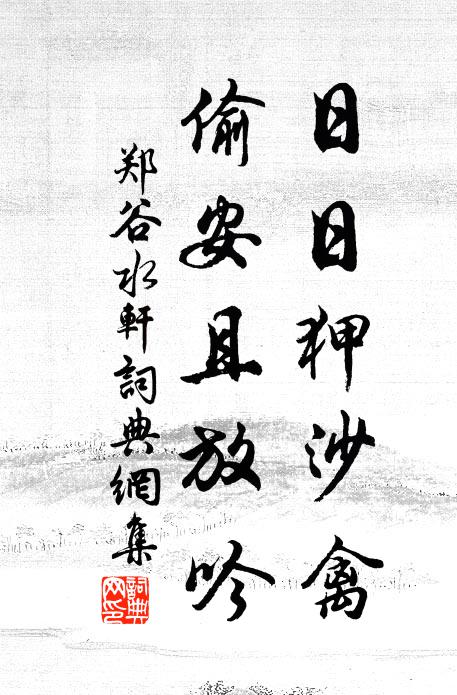 日日狎沙禽
偷安且放吟
郑谷水軒詞典網集
詞典网印